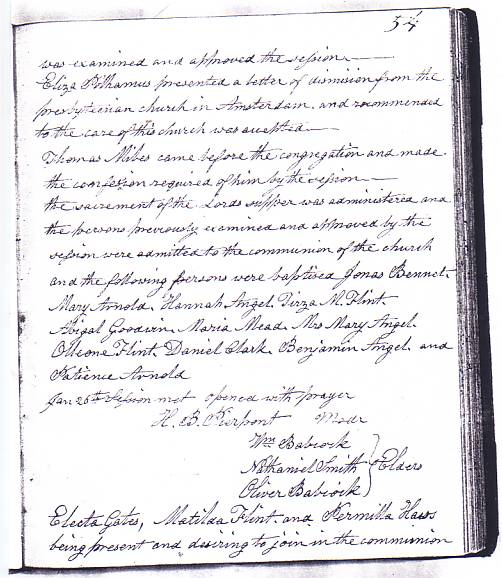 54
was examined and approved the session
Eliza Pithamus presented a letter of dismision from the
presbyterian church in Amsterdam. and recommended
to the care of this church was accepted
Thomas Mibes came before the congregation and made
the confession required of him by the session
the sacrement of the Lords supper was administered and
the persons previously examined and approved by the
session were admitted to the communion of the church
and the following persons were baptised Jonas Bennet.
Mary Arnold. Hannah Angel. Tirza M. Flint.
Abigal Goodwin. Maria Mead. Mrs Mary Angel.
Flint. Daniel Clark. Benjamin Angel. and
Patience Arnold
Jan 26th Session met opened with prayer
H. B. Pierpont Modr
Wm Babcock
Nathaniel Smith Elders
Oliver Babcock
Electa Gates, Matilda Flint. and Permilla Haws
being present and desiring to join in the communion